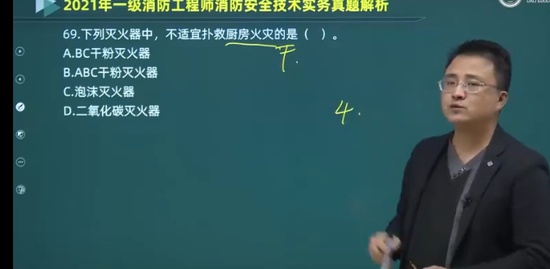 2021年一级消防工程师消防安全技术实务真题解析
69.下列灭火器中，不适宜扑救厨房火灾的是（ ）。
F.
A.BC干粉灭火器
B.ABC干粉灭火器
C.泡沫灭火器
D.二氧化碳灭火器
4.